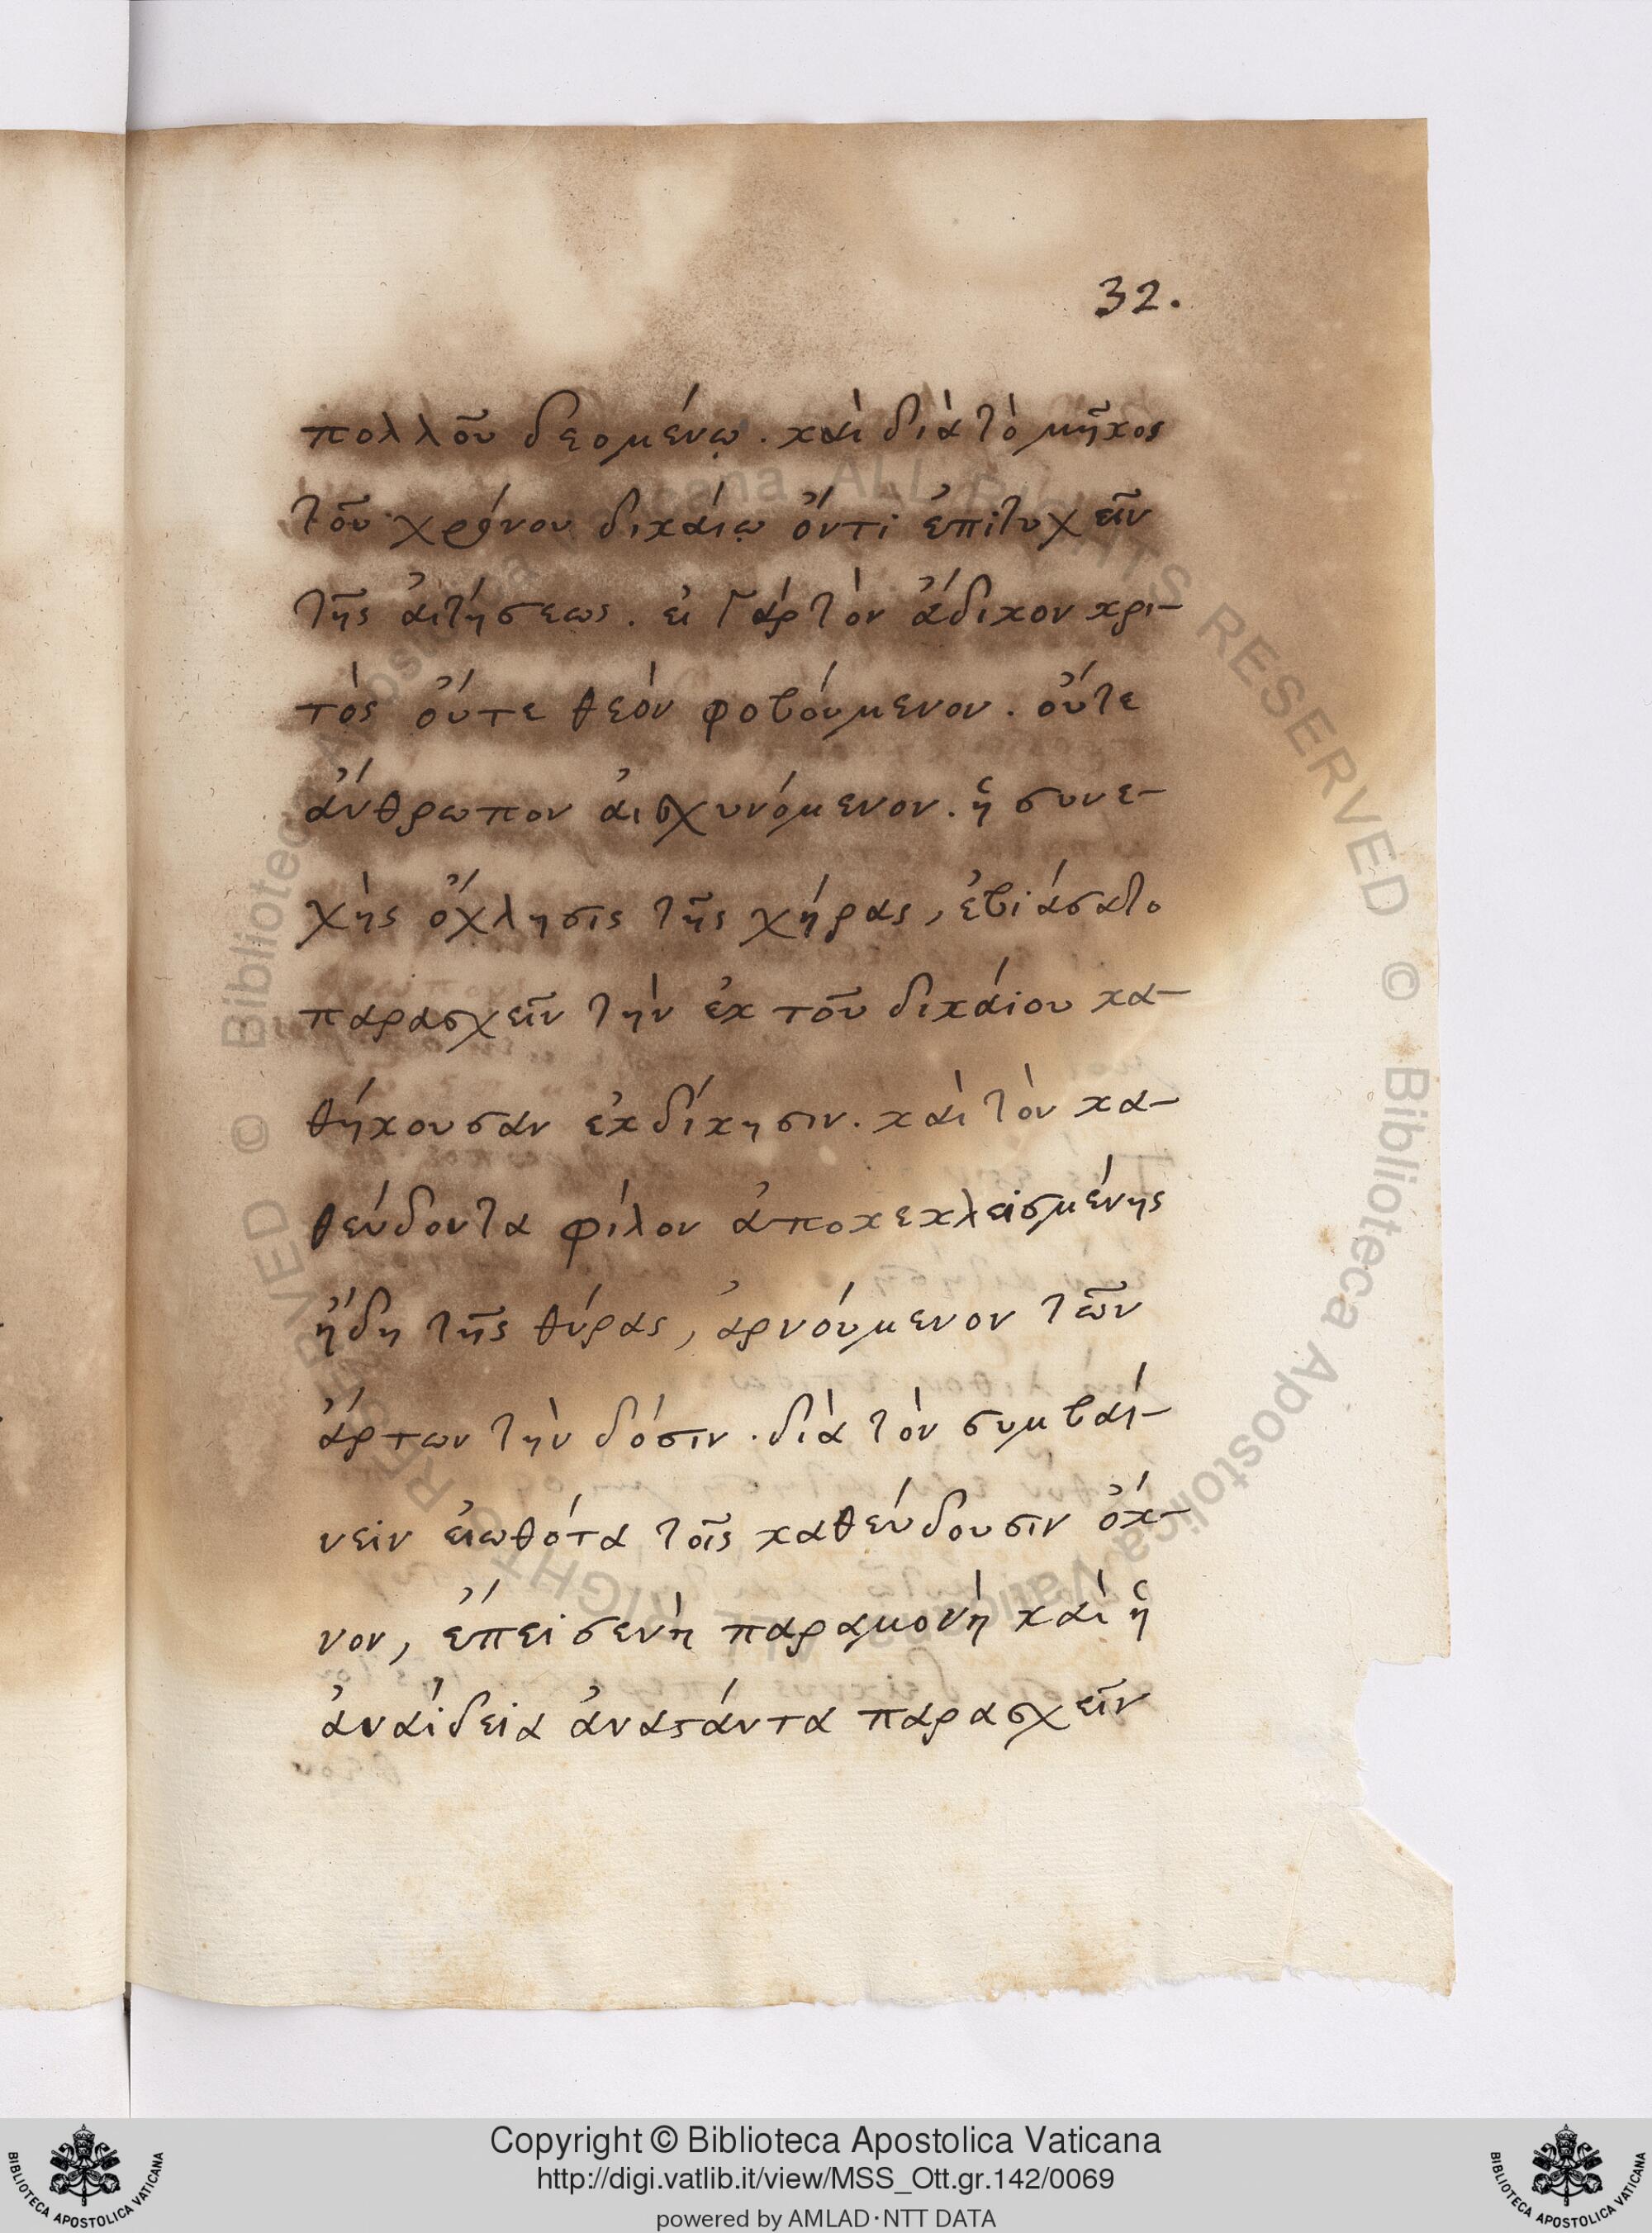 32.
πολλοῦ δεομένῳ. καὶ διὰ τὸ μῆκος
τοῦ χρόνου δικάιῳ ὄντι ἐπιτυχεῖν
τῆς ἀιτήσεως. ἐι γὰρ τὸν ἄδικον κρι-
τὸς οὔτε θεὸν φοβούμενον. οὔτε
ἄνθρωπον ἀισχυνόμενον. ἡ συνε-
χὴς ὄχλησις τῆς χήρας, ἐβιάσατο
παρασχεῖν τὴν ἐκ τοῦ δικάιου κα-
θήκουσαν ἐκδίκησιν. καὶ τὸν κα-
θεύδοντα φίλον ἀποκεκλεισμένης
ἤδη τῆς θύρας, ἀρνούμενον τῶν
ἄρτων τὴν δόσιν. διὰ τὸν συμβάι-
νειν ἐιωθότα τοῖς καθεύδουσιν ὄκ-
νον, ἔπεισενὴ παραμονὴ καὶ ἡ
ἀναίδεια ἀναϛάντα παρασχεῖν
© Biblioteca Apostolica Vaticana ALL RIGHTS RESERVED © Biblioteca Apostolica Vaticana ALL RIGHTS RESERVED
Copyright © Biblioteca Apostolica Vaticana
http://digi.vatlib.it/view/MSS_Ott.gr.142/0069
powered by AMLAD·NTT DATA
BIBLIOTECA APOSTOLICA VATICANA
BIBLIOTECA APOSTOLICA VATICANA